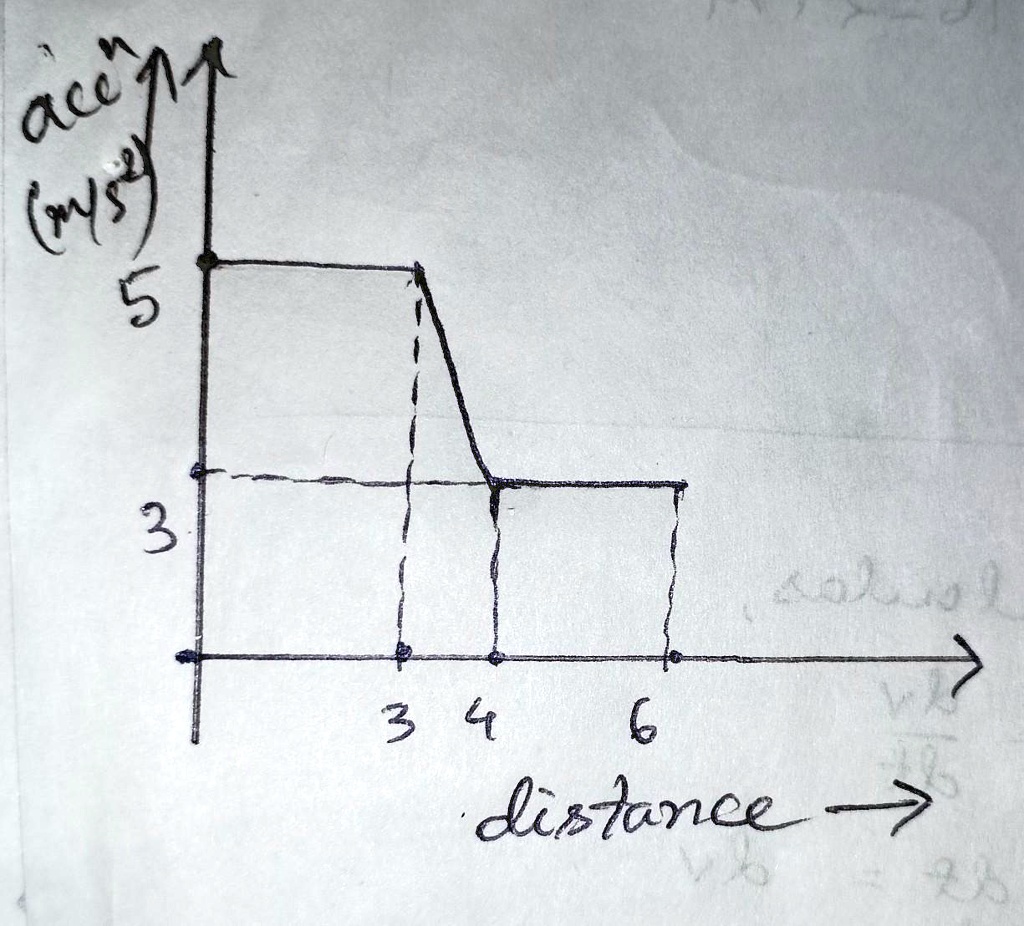 accⁿ
(m/s²)
5
3
3 4 6
distance →